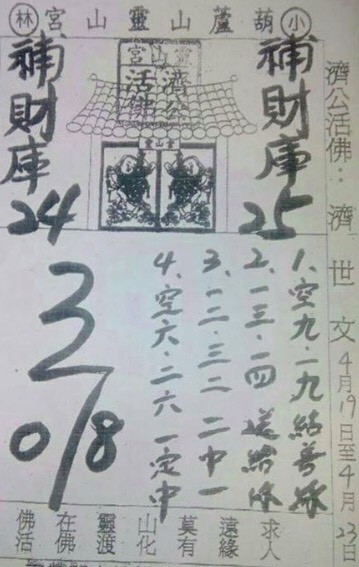 小葫蘆山靈山宮林
濟公活佛：濟世文4月19日至4月23日
補財庫
25
靈山宮
濟公
活佛
補財庫
24
1、空九、一九結善緣
2、一三、一四送給你
3、一二、三二二中一
4、空六、二六一定中
3
0/8
佛在靈山莫遠求
活佛渡化有緣人